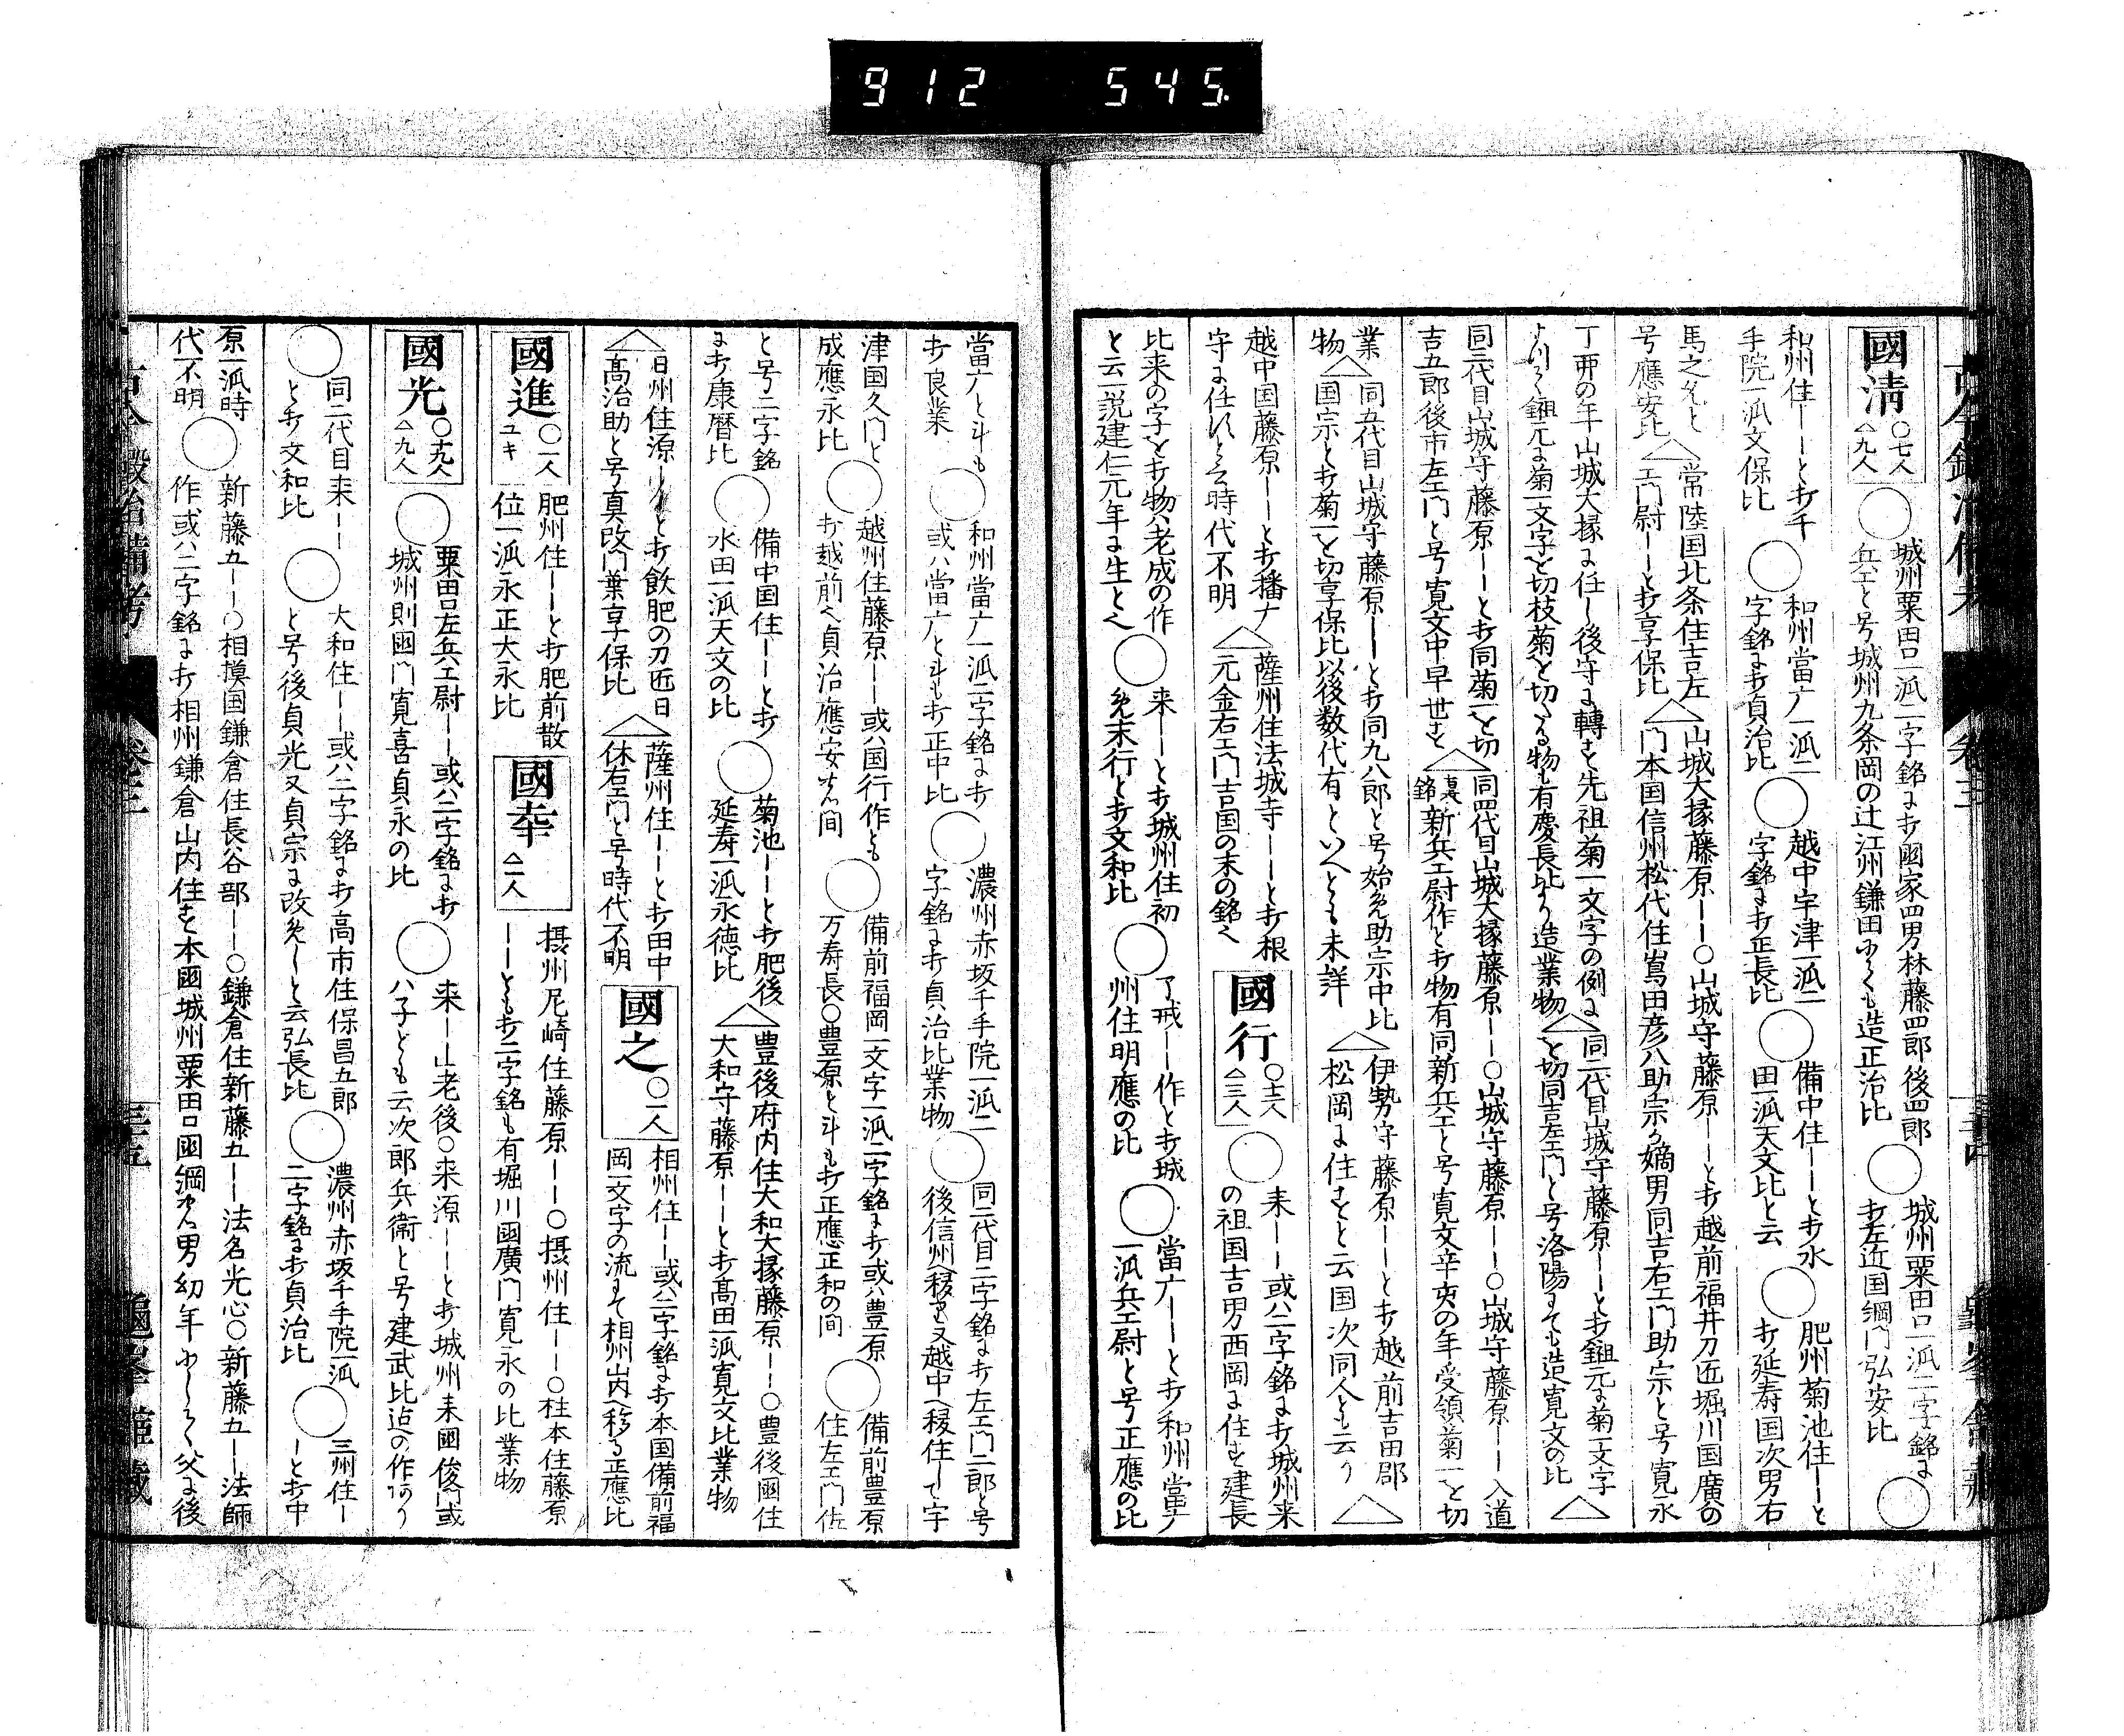 912 545
國清 ○七人 △九人
城州粟田口一派二字銘ニ打國家四男林藤四郎後四郎
兵エと号城州九条岡の辻江州鎌田ニても造正治比
城州粟田口一派二字銘ニ
打左近国綱門弘安比
和州住ーーと打千
手院一派文保比
和州當广一派二
字銘ニ打貞治比
越中宇津一派二
字銘ニ打正長比
備中住ーーと打水
田一派天文比と云
肥州菊池住ーーと
打延寿国次男右
馬之允と
号應安比
常陸国北条住吉左
エ門尉ーーと打享保比
山城大掾藤原ーー○山城守藤原ーーと打越前福井刀匠堀川国廣の
門本国信州松代住嶌田彦八助宗の嫡男同吉右エ門助宗と号寛永
丁酉の年山城大掾ニ任し後守ニ轉す先祖菊一文字の例ニ
より鎺元ニ菊一文字を切枝菊を切たる物も有慶長比より造業物
同二代目山城守藤原ーーと打鎺元ニ菊一文字
を切同吉左エ門と号洛陽ニても造寛文の比
同三代目山城守藤原ーーと打同菊一を切
吉五郎後市左エ門と号寛文中早世す
同四代目山城大掾藤原ーー○山城守藤原ーー○山城守藤原ーー入道
新兵エ尉作と打物有同新兵エと号寛文辛亥の年受領菊一を切
業
物
同五代目山城守藤原ーーと打同九八郎と号始め助宗中比
国宗と打菊一を切享保比以後数代有といへとも未詳
伊勢守藤原ーーと打越前吉田郡
松岡ニ住すと云国次同人とも云り
越中国藤原ーーと打播广
守ニ任すと云時代不明
薩州住法城寺ーーと打根
元金右エ門吉国の末の銘へ
國行 ○十三人 △三人
来ーー或ハ二字銘ニ打城州来
の祖国吉男西岡ニ住す建長
比来の字を打物ハ老成の作
と云一説建仁元年ニ生と云
来ーーと打城州住初
め末行と打文和比
了戒ーー作と打城
州住明應の比
當广ーーと打和州當广
一派兵エ尉と号正應の比
當广と斗も
打良業
和州當广一派二字銘ニ打
或ハ當广と斗も打正中比
濃州赤坂千手院一派二
字銘ニ打貞治比業物
同二代目二字銘ニ打左エ門二郎と号
後信州へ移す又越中へ移住して宇
津国久門と
成應永比
越州住藤原ーー或ハ国行作とも
打越前へ貞治應安の間
備前福岡一文字一派二字銘ニ打或ハ豊原
万寿長○豊原と斗も打正應正和の間
備前豊原
住左エ門佐
と号二字銘
ニ打康暦比
備中国住ーーと打
水田一派天文の比
菊池ーーと打肥後
延寿一派永徳比
豊後府内住大和大掾藤原ーー○豊後國住
大和守藤原ーーと打髙田一派寛文比業物
日州住源ーーと打飲肥の刀匠日
髙治助と号真改門業享保比
薩州住ーーと打田中
休右エ門と号時代不明
國之 ○一人
相州住ーー或ハ二字銘ニ打本国備前福
岡一文字の流ニて相州山内へ移る正應比
國進 ○一人 ユキ
肥州住ーーと打肥前散
位一派永正大永比
國幸 △二人
摂州尼崎住藤原ーー○摂州住ーー○柱本住藤原
ーーとも打二字銘も有堀川國廣門寛永の比業物
國光 ○十九人 △九人
粟田口左兵エ尉ーー或ハ二字銘ニ打
城州則國門寛喜貞永の比
来ーー山老後○来源ーーと打城州来國俊門或
ハ子とも云次郎兵衛と号建武比迠の作有り
同二代目来ーー
と打文和比
大和住ーー或ハ二字銘ニ打高市住保昌五郎
と号後貞光又貞宗ニ改めしと云弘長比
濃州赤坂千手院一派
二字銘ニ打貞治比
三州住ーー
ーと打中
原一派時
代不明
新藤五ーー○相摸国鎌倉住長谷部ーー○鎌倉住新藤五ーー法名光心○新藤五ーー法師
作或ハ二字銘ニ打相州鎌倉山内住す本國城州粟田口國綱の男幼年にして父ニ後
古今鍛冶備考 巻三 三十五 龜峯館藏